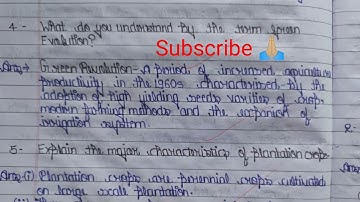 4- What do you understand by the term Green
Evalution?
Subscribe 🙏
Ans→ Green Revolution- A period of increased agriculture
productivity in the 1960s characterized by the
adoption of high yielding seeds varities of crops
modern farming methods and the expansion of
irrigation system.
R-
5- Explain the major characteristics of plantation crops
Ans(i) Plantation crops are perennial crops cultivated
on large scale plantation.